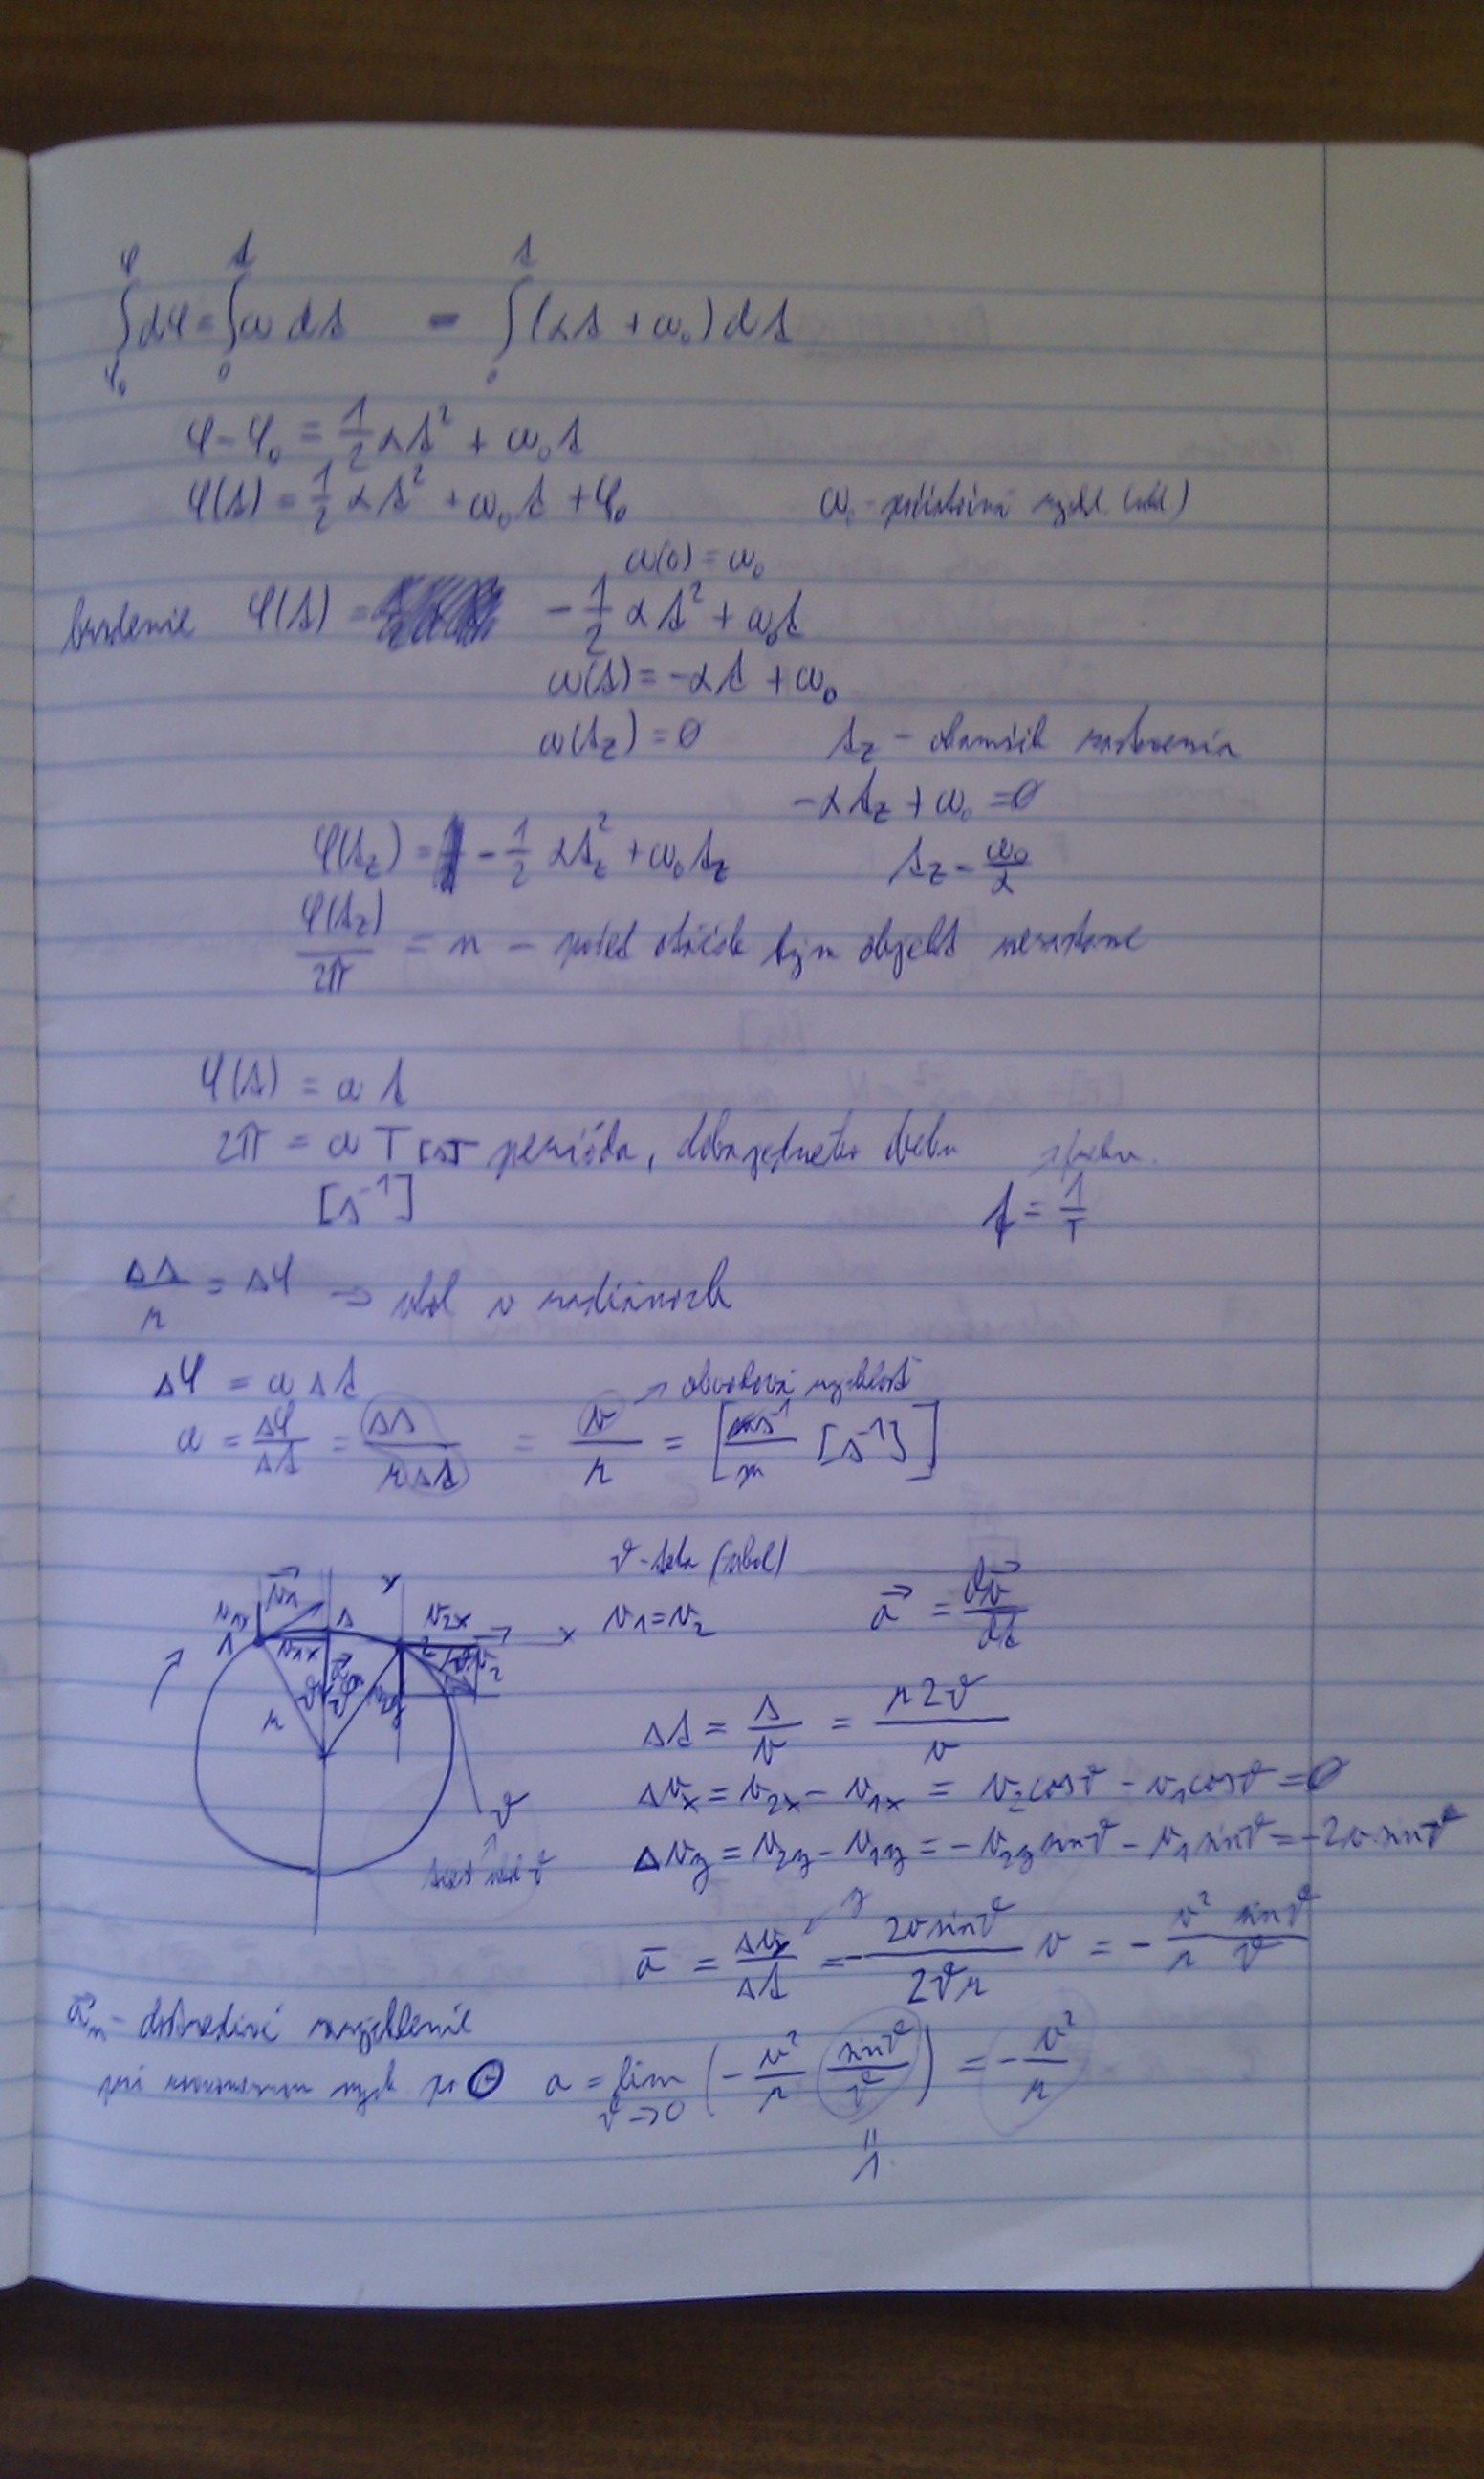 ∫_{φ₀}^{φ} dφ = ∫_{0}^{t} ω dt = ∫_{0}^{t} (αt + ω₀) dt
φ - φ₀ = 1/2 αt² + ω₀t
φ(t) = 1/2 αt² + ω₀t + φ₀ ω₀ - počiatočná rýchl. (uhl)
ω(0) = ω₀
brzdenie φ(t) = - 1/2 αt² + ω₀t
ω(t) = -αt + ω₀
ω(t_z) = 0 t_z - okamžik zastavenia
-αt_z + ω₀ = 0
φ(t_z) = - 1/2 αt_z² + ω₀t_z t_z = ω₀/α
φ(t_z)/2π = n - počet otáčok kým objekt nezastane
φ(t) = ωt
2π = ωT [s] perióda, doba jedného obehu
[s⁻¹] f = 1/T
Δs/r = Δφ → uhol v radiánoch
Δφ = ωΔt → obvodová rýchlosť
ω = Δφ/Δt = Δs/rΔt = v/r = [ms⁻¹/m [s⁻¹]]
ϑ - teta (uhol)
v₁ = v₂ a⃗ = dv⃗/dt
v⃗₁ v₁y v₁x 1 s y v₂x x 2 v₂ v₂y ϑ ϑ r
Δt = s/v = r2ϑ/v
Δv_x = v₂x - v₁x = v₂cosϑ - v₁cosϑ = 0
ϑ
Δv_y = v₂y - v₁y = -v₂y sinϑ - v₁ sinϑ = -2v sinϑ
uhol ϑ
y
a̅ = Δv_y/Δt = - 2v sinϑ/2ϑr v = - v²/r sinϑ/ϑ
a⃗_n - dostredivé zrýchlenie
pri rovnomernom po a = lim_{ϑ→0} (- v²/r sinϑ/ϑ) = - v²/r
=
1